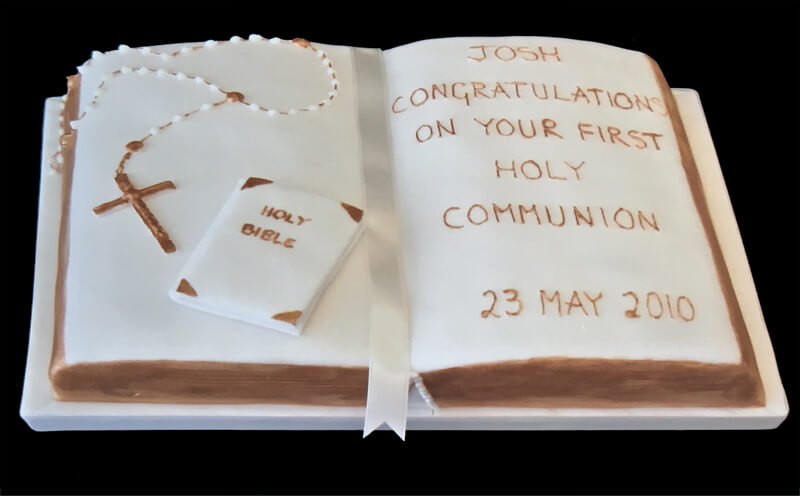 HOLY
BIBLE
JOSH
CONGRATULATIONS
ON YOUR FIRST
HOLY
COMMUNION
23 MAY 2010